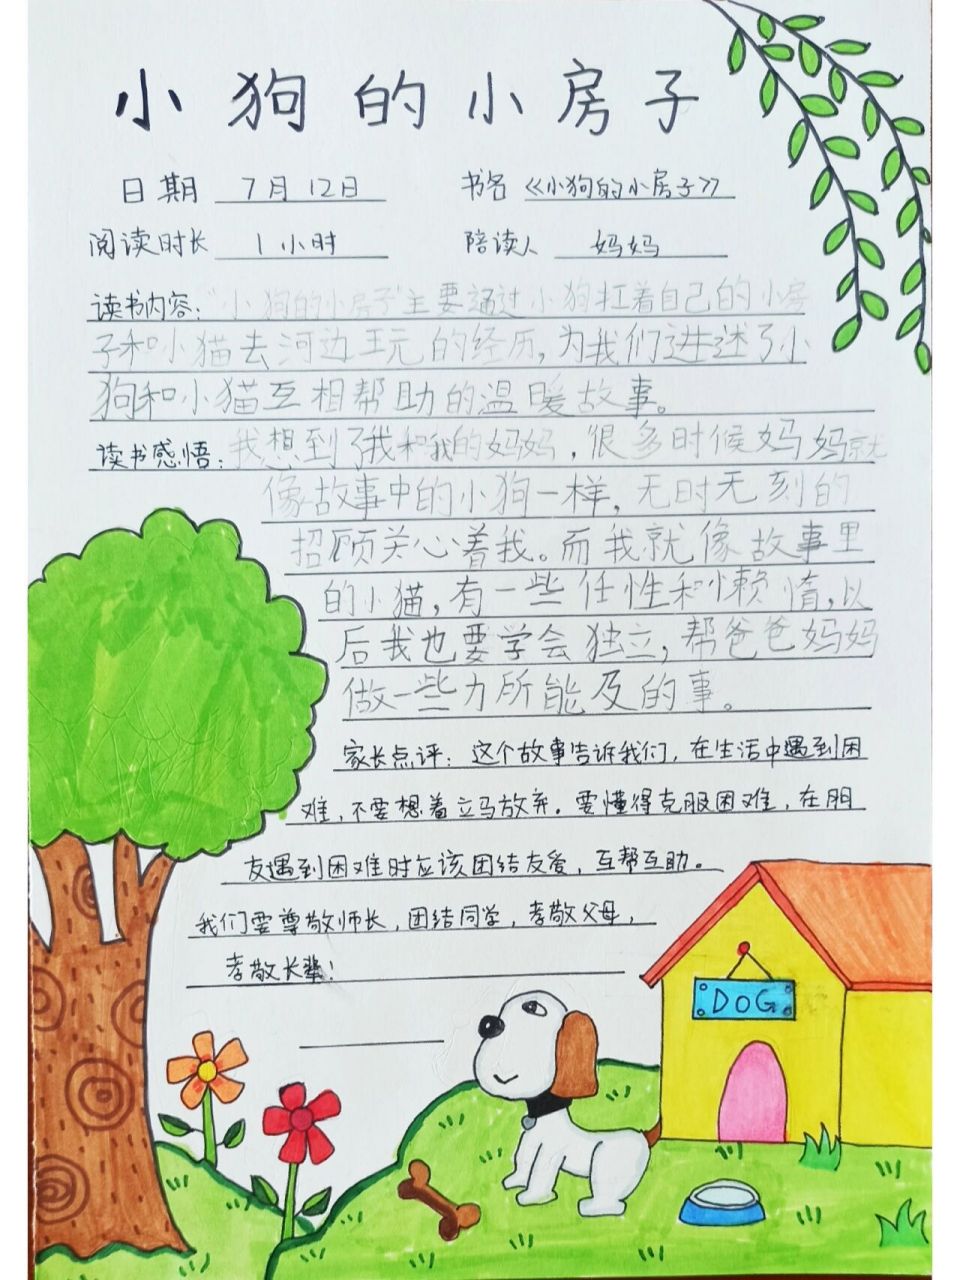 小狗的小房子
日期 7月12日 书名 《小狗的小房子》
阅读时长 1小时 陪读人 妈妈
读书内容："小狗的小房子"主要通过小狗扛着自己的小房
子和小猫去河边玩的经历，为我们讲述了小
狗和小猫互相帮助的温暖故事。
读书感悟：我想到了我和我的妈妈，很多时候妈妈就
像故事中的小狗一样，无时无刻的
招顾关心着我。而我就像故事里
的小猫，有一些任性和懒惰，以
后我也要学会独立，帮爸爸妈妈
做一些力所能及的事。
家长点评：这个故事告诉我们，在生活中遇到困
难，不要想着立马放弃。要懂得克服困难，在朋
友遇到困难时应该团结友爱，互帮互助。
我们要尊敬师长，团结同学，孝敬父母，
孝敬长辈！
DOG